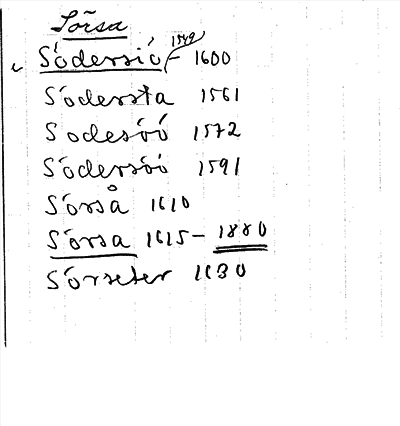 Sörsa
Södersiö 1549 - 1600
Södersta 1561
Sodesöö 1572
Södersöö 1591
Sörså 1610
Sörsa 1615 - 1880
Sörseter 1630